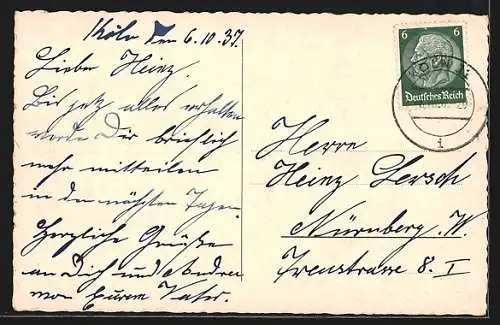 Köln den 6.10.37.
Lieber Heinz.
Bis jetz alles erhalten
werde Dir brieflich
mehr mitteilen
in den nächsten Tagen.
Herzliche Grüße
an Dich und Andren
von Eurem Vater.
6 6
Deutsches Reich
KÖLN
1
Herrn
Heinz Lersch
Nürnberg. W.
Irrerstrasse 8. I